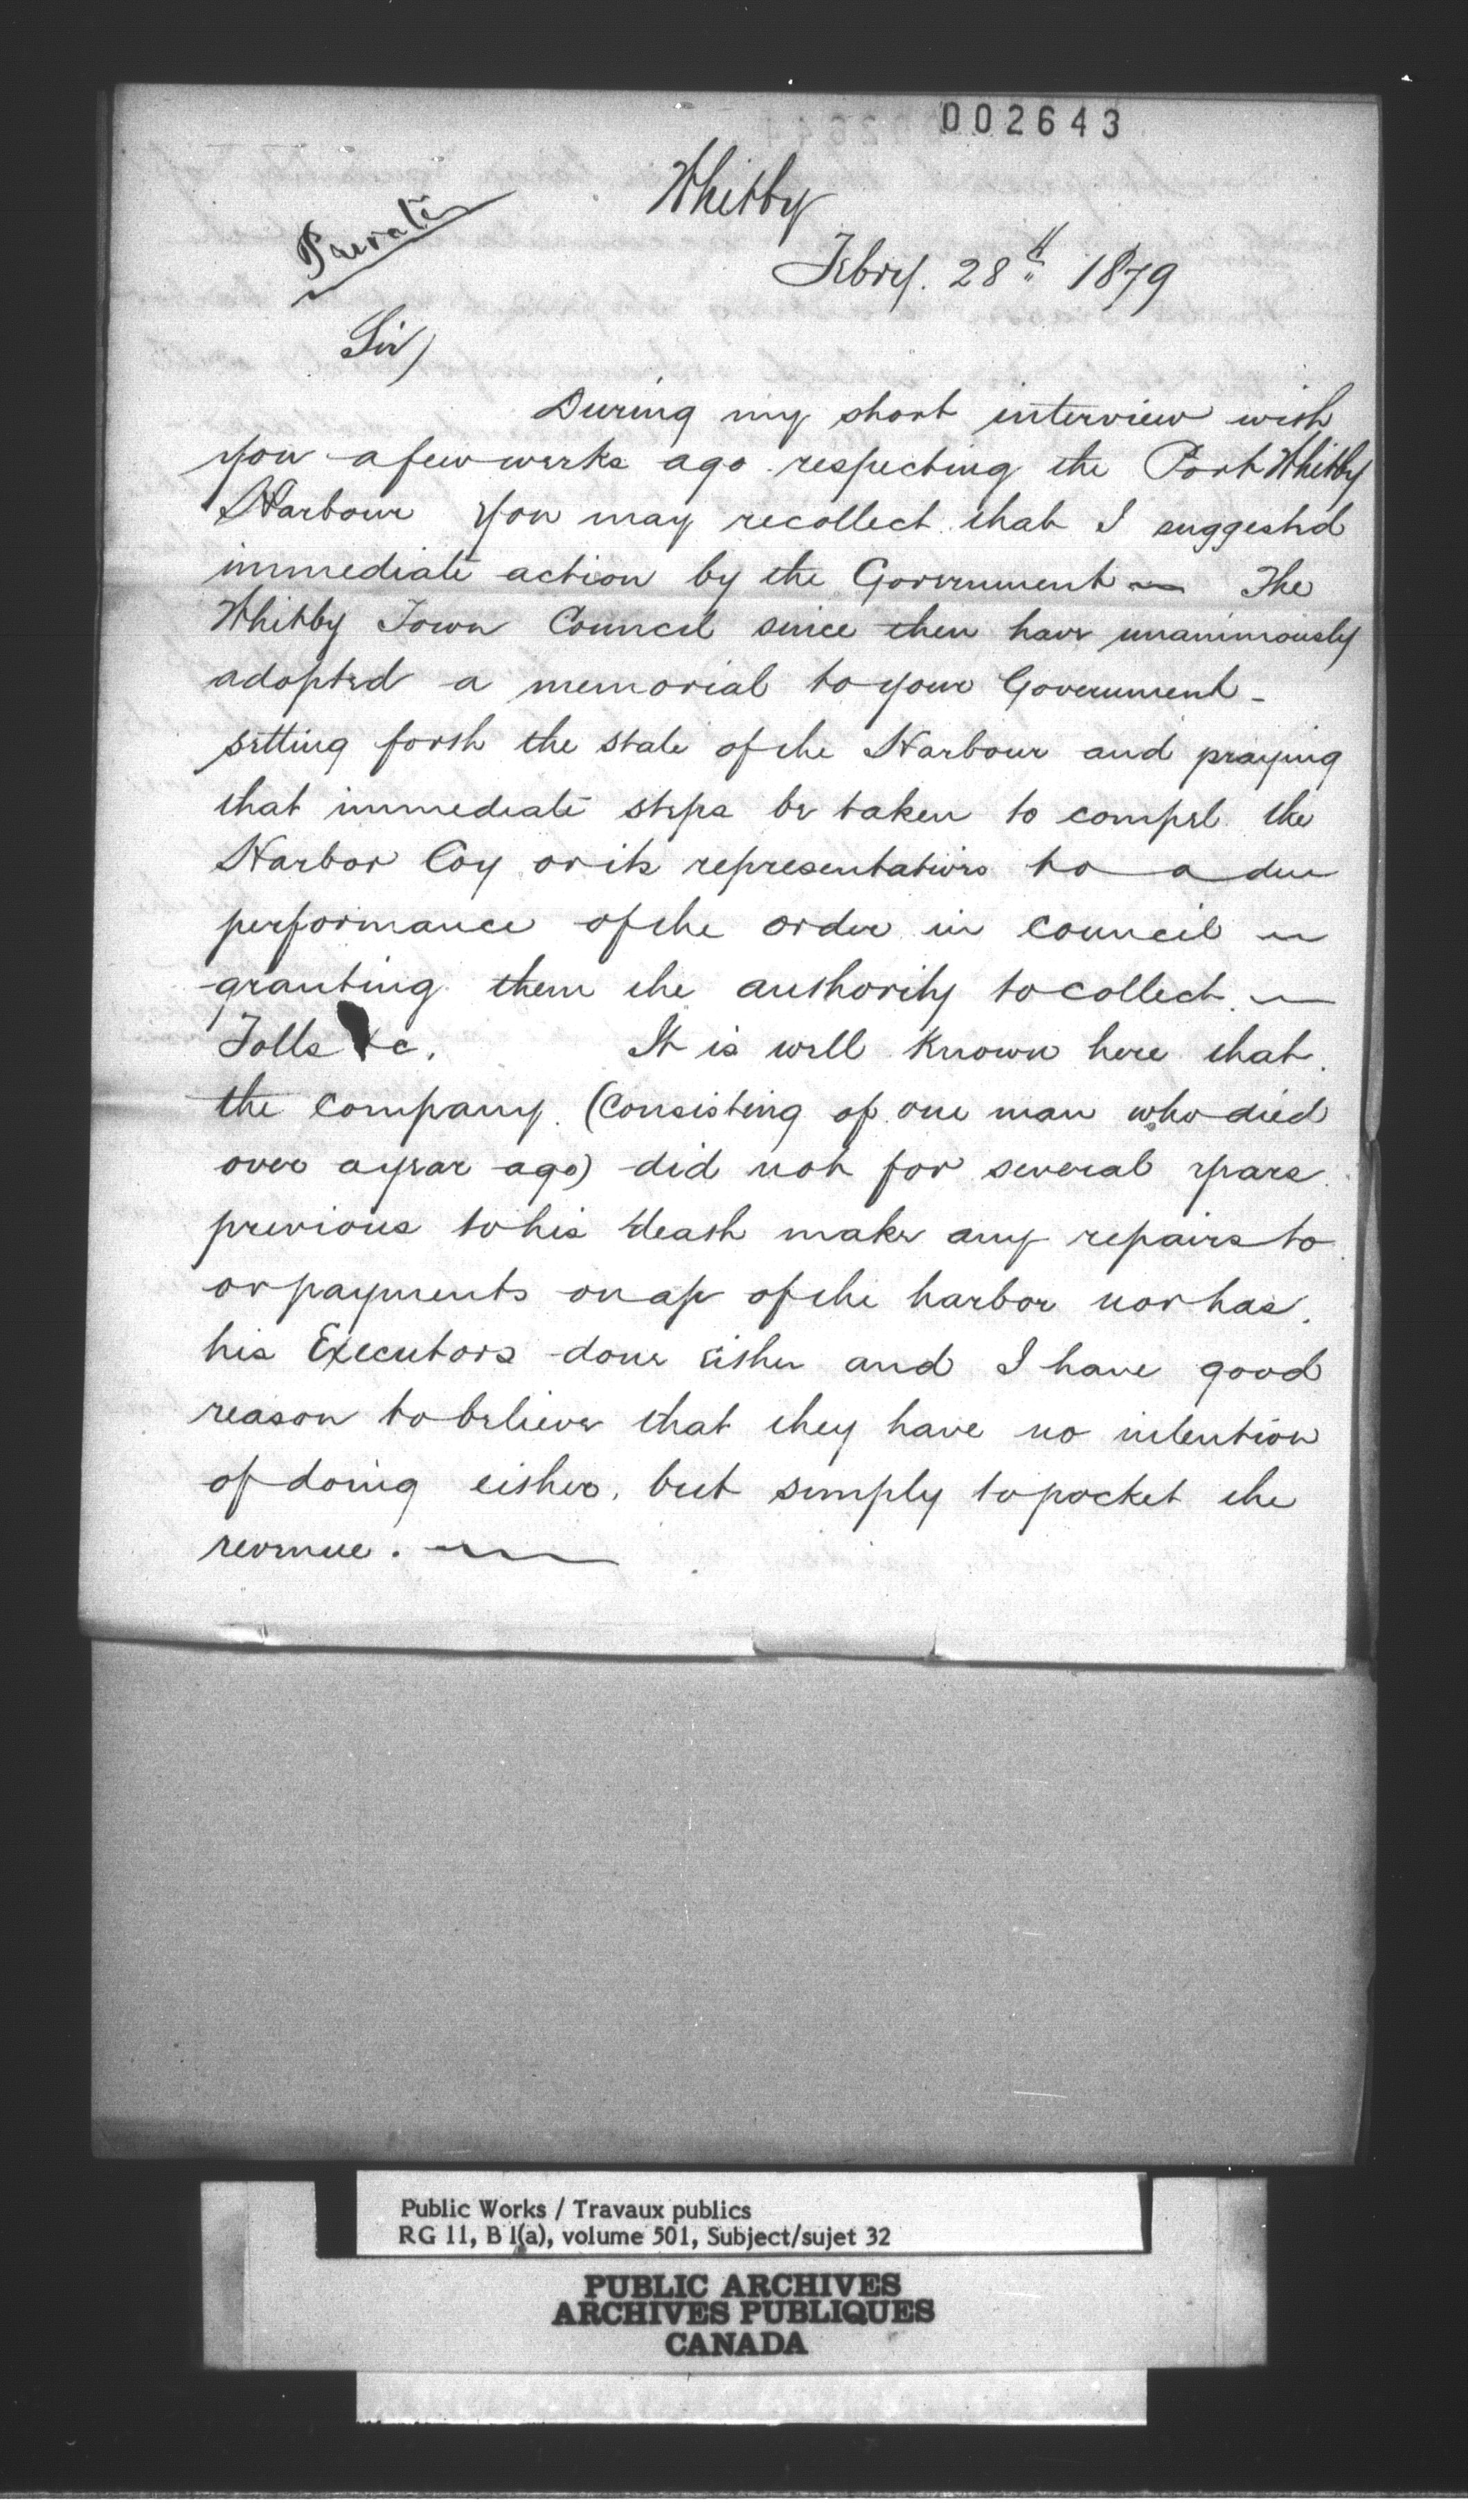 002643
Whitby
Private
Febry. 28th 1879
Sir,
During my short interview with
you a few weeks ago respecting the Port Whitby
Harbour You may recollect that I suggested
immediate action by the Government — The
Whitby Town Council since then have unanimously
adopted a memorial to your Government -
setting forth the state of the Harbour and praying
that immediate steps be taken to compel the
Harbor Coy or its representatives to a due
performance of the order in council —
granting them the authority to collect —
Tolls &c. It is well known here that
the company (consisting of one man who died
over a year ago) did not for several years
previous to his death make any repairs to
or payments on a/c of the harbor nor has
his Executors done either and I have good
reason to believe that they have no intention
of doing either, but simply to pocket the
revenue. —
Public Works / Travaux publics
RG 11, B 1(a), volume 501, Subject/sujet 32
PUBLIC ARCHIVES
ARCHIVES PUBLIQUES
CANADA